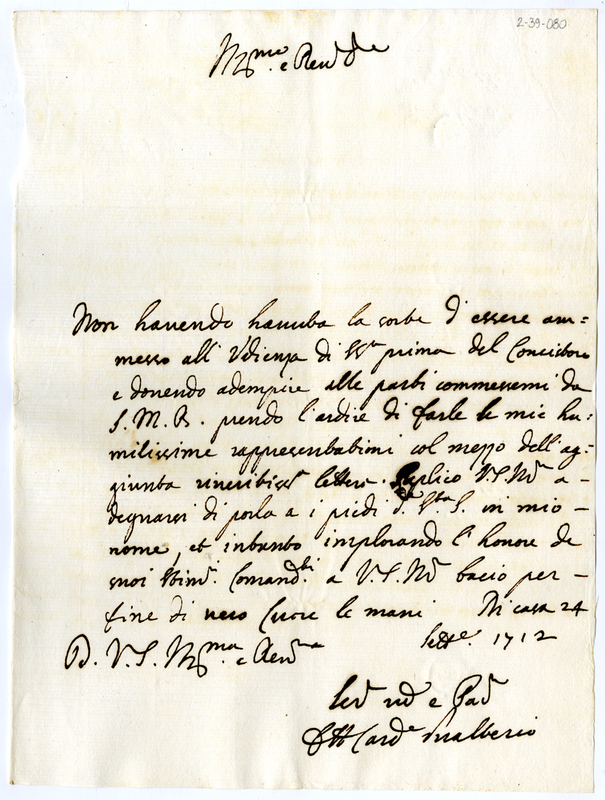 2-39-080
Ill.mo e Rev.
Non havendo havuta la sorte d'essere am=
messo all'Udienza di prima del Concistoro
e dovendo adempire alle parti commessemi da
S. M. prendo l'ardire di farle le mie hu=
milissime rappresentationi col mezzo dell'ag=
giunta lettera. Suplico V. S. Ill. a -
degnarsi di porla a i piedi S.ta S. in mio -
nome, et intanto implorando l'honore de
suoi Comand.ti a V. S. Ill. bacio per -
fine di vero Cuore le mani Di casa 24
Sett.e 1712
D. V. S. Ill.ma e Rev.ma
e
Card.